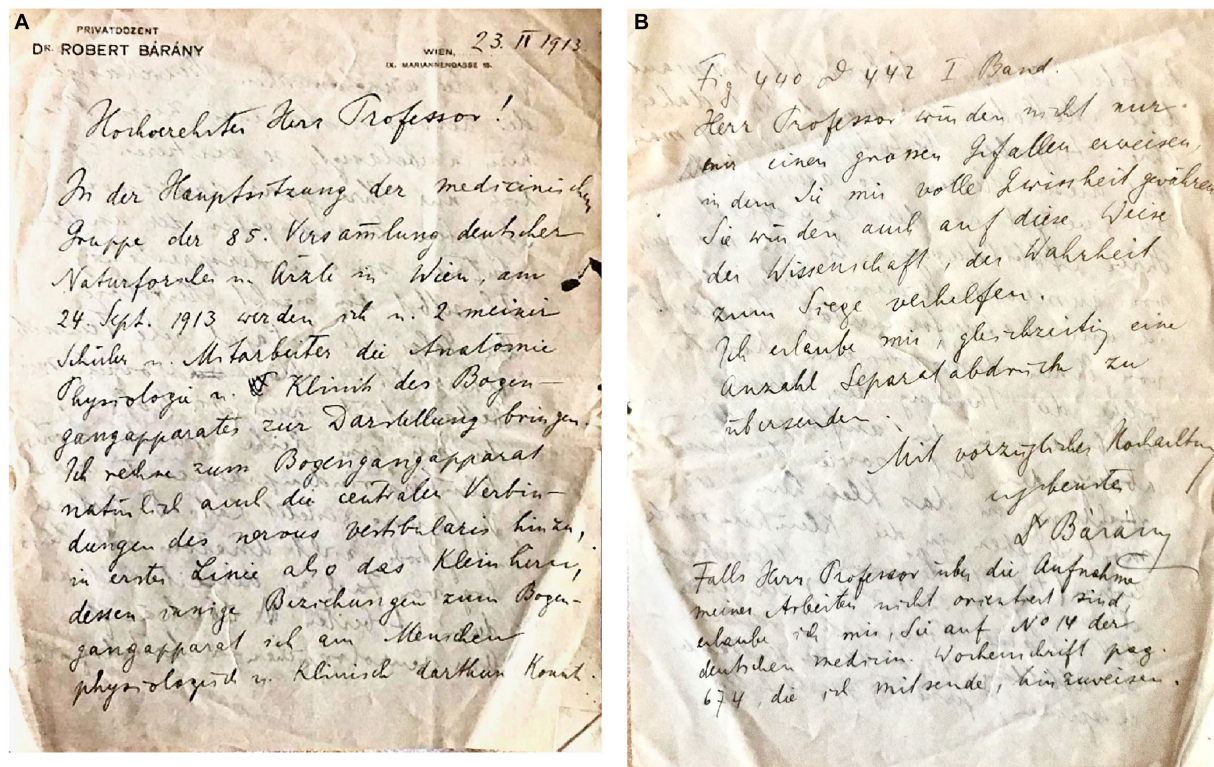 A
PRIVATDOZENT
DR. ROBERT BÁRÁNY
WIEN, 23. II 1913.
IX. MARIANNENGASSE 15.
Hochverehrter Herr Professor!
In der Hauptsitzung der medicinischen
Gruppe der 85. Versam̅lung deutscher
Naturforscher u. Ärzte in Wien, am
24 Sept. 1913 werden ich u. 2 meiner
Schüler u. Mitarbeiter die Anatomie
Physiologie u. Klinik des Bogen-
gangapparates zur Darstellung bringen.
Ich rechne zum Bogengangapparat
natürlich auch die centralen Verbin-
dungen des nervus vestibularis hinzu,
in erster Linie also das Kleinhirn,
dessen innige Beziehungen zum Bogen-
gangapparat ich am Menschen
physiologisch u. klinisch darthun konnte.
B
Fig 440 442 I Band.
Herr Professor würden nicht nur
mir einen grossen Gefallen erweisen,
indem Sie mir volle Gewissheit gewähren
Sie würden auch auf diese Weise
der Wissenschaft, der Wahrheit
zum Siege verhelfen.
Ich erlaube mir, gleichzeitig eine
Anzahl Separatabdrücke zu
übersenden.
Mit vorzüglicher Hochachtung
ergebenster
Dr Bárány
Falls Herr Professor über die Aufnahme
meiner Arbeiten nicht orientiert sind,
erlaube ich mir, Sie auf No 14 der
deutschen medicin. Wochenschrift pag.
674, die ich mitsende, hinzuweisen.